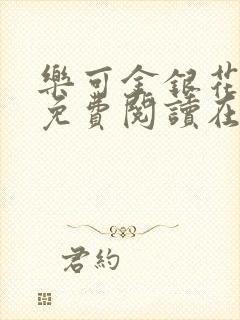 樂可金銀花
免費閱讀在
君約